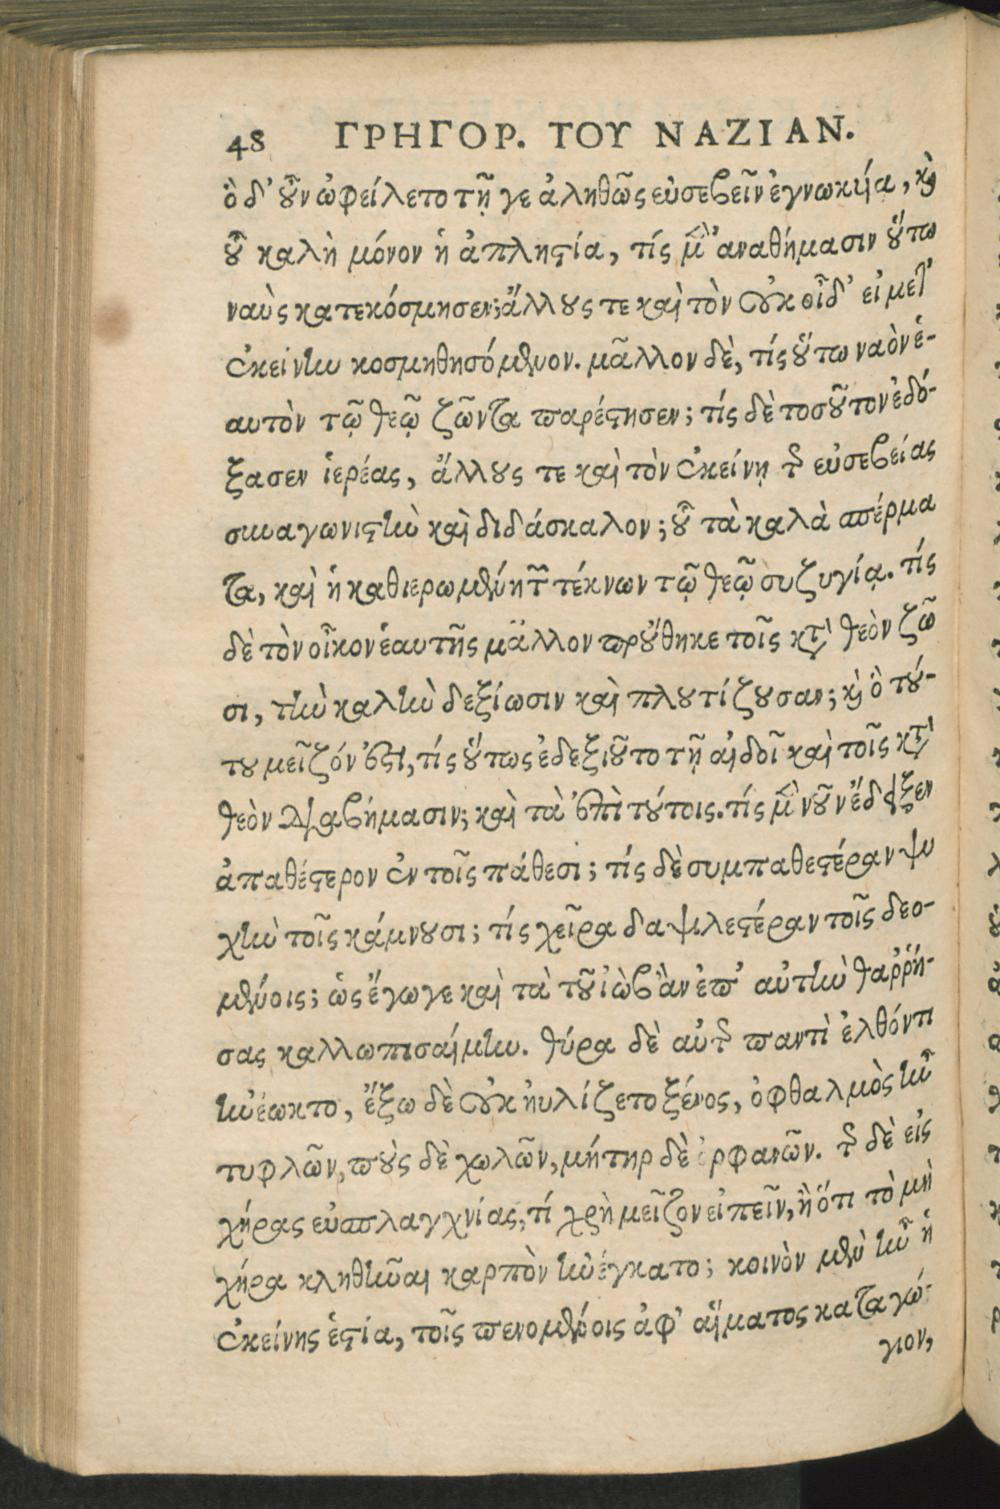 48 ΓΡΗΓΟΡ. ΤΟΥ ΝΑΖΙΑΝ.
ὃ δ' οὖν ὠφείλετο τῇ γε ἀληθῶς εὐσεβεῖν ἐγνωκυίᾳ, καὶ
οὗ καλὴ μόνον ἡ ἀπληστία, τίς μὲν ἀναθήμασιν οὕτω
ναοὺς κατεκόσμησεν; ἄλλους τε καὶ τὸν οὐκ οἶδ' εἰ μετ'
ἐκείνην κοσμηθησόμενον. μᾶλλον δὲ, τίς οὕτω ναὸν ἑ-
αυτὸν τῷ θεῷ ζῶντα παρέστησεν; τίς δὲ τοσοῦτον ἐδό-
ξασεν ἱερέας, ἄλλους τε καὶ τὸν ἐκείνῃ τῆς εὐσεβείας
συναγωνιστὴν καὶ διδάσκαλον; οὗ τὰ καλὰ σπέρμα
τα, καὶ ἡ καθιερωμένη τῶν τέκνων τῷ θεῷ συζυγίᾳ. τίς
δὲ τὸν οἶκον ἑαυτῆς μᾶλλον προὔθηκε τοῖς κατὰ θεὸν ζῶ
σι, τὴν καλὴν δεξίωσιν καὶ πλουτίζουσαν; καὶ ὃ τού-
του μεῖζόν ἐστι, τίς οὕτως ἐδεξιοῦτο τῇ αἰδοῖ καὶ τοῖς κατὰ
θεὸν διαβήμασιν; καὶ τὰ ἐπὶ τούτοις. τίς μὲν νοῦν ἔδειξεν
ἀπαθέστερον ἐν τοῖς πάθεσι; τίς δὲ συμπαθεστέραν ψυ
χὴν τοῖς κάμνουσι; τίς χεῖρα δαψιλεστέραν τοῖς δεο-
μένοις; ὡς ἔγωγε καὶ τὰ τοῦ ἰὼβ ἂν ἐπ' αὐτὴν θαῤῥή-
σας καλλωπισαίμην. θύρα δὲ αὐτῆς παντὶ ἐλθόντι
ἠνέωκτο, ἔξω δὲ οὐκ ηὐλίζετο ξένος, ὀφθαλμὸς ἦν
τυφλῶν, ποὺς δὲ χωλῶν, μήτηρ δὲ ὀρφανῶν. τῆς δὲ εἰς
χήρας εὐσπλαγχνίας, τί χρὴ μεῖζον εἰπεῖν, ἢ ὅτι τὸ μὴ
χήρα κληθῆναι καρπὸν ἠνέγκατο; κοινὸν μὲν ἦν ἡ
ἐκείνης ἑστία, τοῖς πενομένοις ἀφ' αἵματος καταγώ-
γιον,